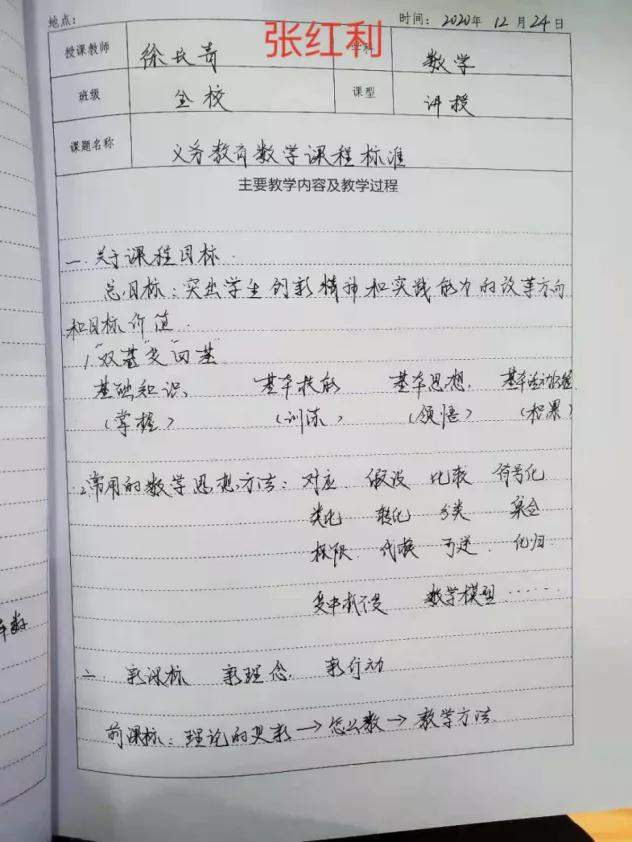 地点： 时间：2020年12月24日
张红利
授课教师 徐长青 学科 数学
班级 全校 课型 讲授
课题名称 义务教育数学课程标准
主要教学内容及教学过程
一.关于课程目标.
总目标：突出学生创新精神和实践能力的改革方向
和目标价值.
1."双基"变"四基"
基础知识、 基本技能 基本思想. 基本活动经验
（掌握） （训练） （领悟） （积累）
2.常用的数学思想方法：对应 假设 比较 符号化
类比 转化 分类 集合
极限 代换 可逆. 化归
变中抓不变 数学模型……
二. 新课标 新理念. 新行动
前课标：理论的更新→怎么教→教学方法.